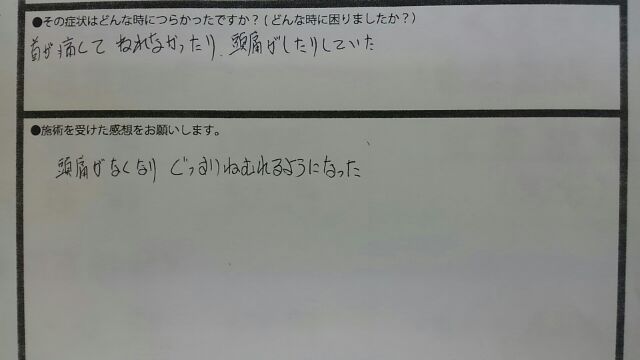 ●その症状はどんな時につらかったですか？(どんな時に困りましたか？)
首が痛して ねれなかったり、頭痛がしたりしていた
●施術を受けた感想をお願いします。
頭痛がなくなり ぐっすりねむれるようになった